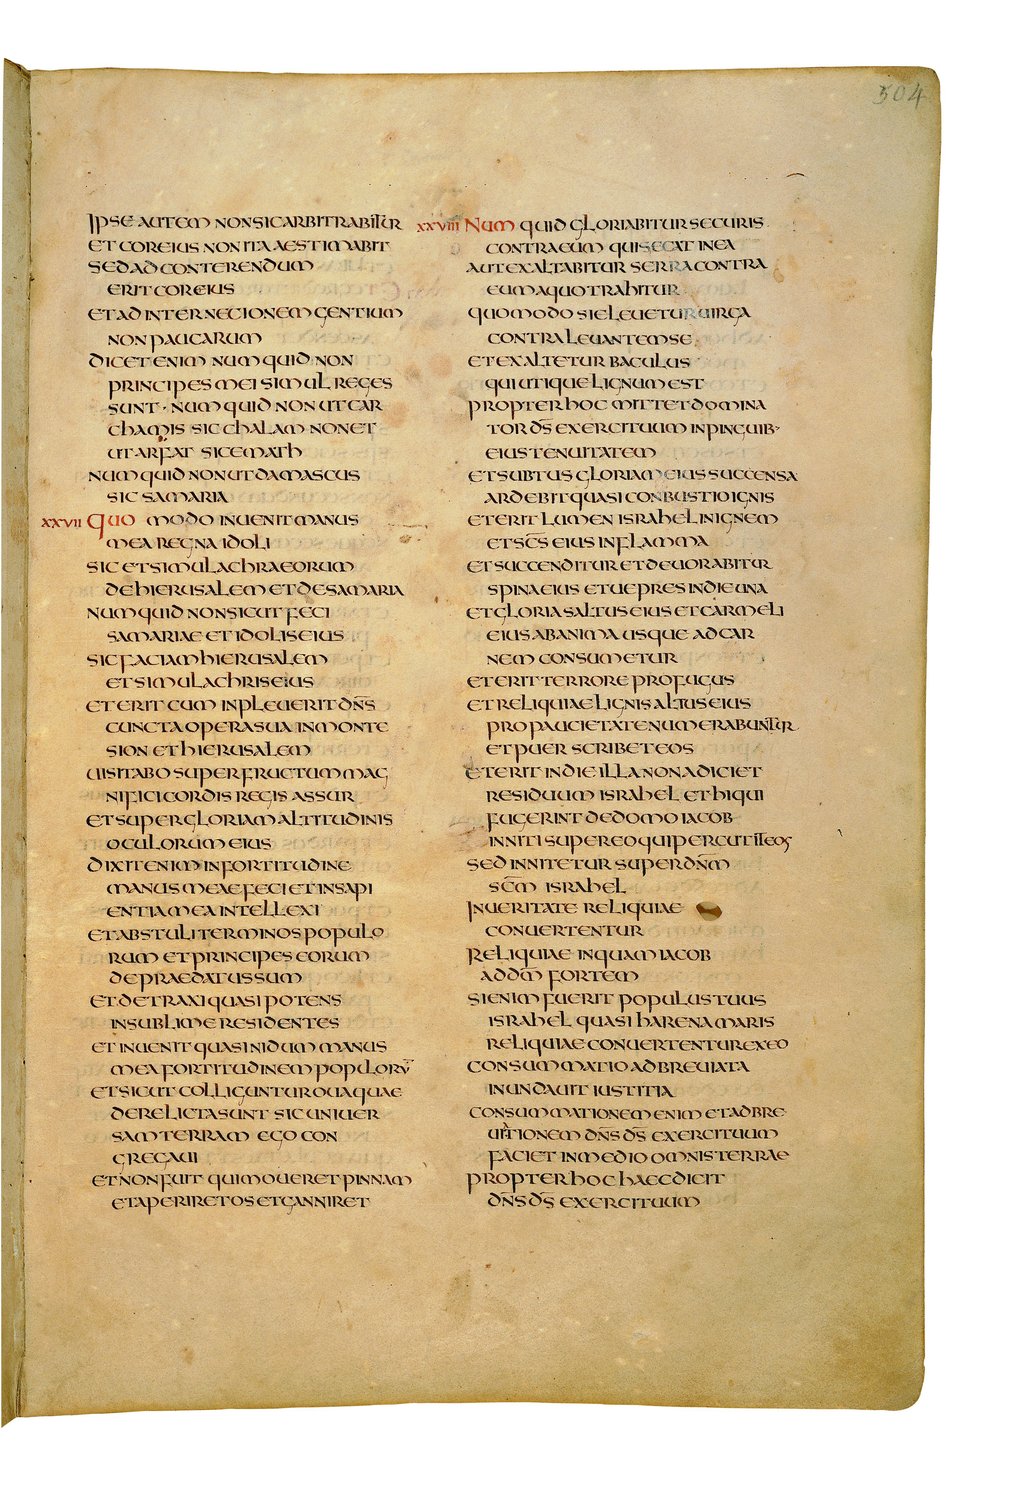 504
IPSE AUTEM NON SIC ARBITRABITUR
ET COR EIUS NON ITA AESTIMABIT
SED AD CONTERENDUM
ERIT COR EIUS
ET AD INTERNECIONEM GENTIUM
NON PAUCARUM
DICET ENIM NUMQUID NON
PRINCIPES MEI SIMUL REGES
SUNT · NUMQUID NON UT CAR
CHAMIS SIC CHALAM NON ET
UT ARFAT SIC EMATH
NUMQUID NON UT DAMASCUS
SIC SAMARIA
XXVII QUO MODO INUENIT MANUS
MEA REGNA IDOLI
SIC ET SIMULACHRA EORUM
DE HIERUSALEM ET DE SAMARIA
NUMQUID NON SICUT FECI
SAMARIAE ET IDOLIS EIUS
SIC FACIAM HIERUSALEM
ET SIMULACHRIS EIUS
ET ERIT CUM INPLEUERIT DN̅S
CUNCTA OPERA SUA IN MONTE
SION ET HIERUSALEM
UISITABO SUPER FRUCTUM MAG
NIFICI CORDIS REGIS ASSUR
ET SUPER GLORIAM ALTITUDINIS
OCULORUM EIUS
DIXIT ENIM IN FORTITUDINE
MANUS MEAE FECI ET IN SAPI
ENTIA MEA INTELLEXI
ET ABSTULI TERMINOS POPULO
RUM ET PRINCIPES EORUM
DEPRAEDATUS SUM
ET DETRAXI QUASI POTENS
IN SUBLIME RESIDENTES
ET INUENIT QUASI NIDUM MANUS
MEA FORTITUDINEM POPULORU̅
ET SICUT COLLIGUNTUR OUA QUAE
DERELICTA SUNT SIC UNIUER
SAM TERRAM EGO CON
GREGAUI
ET NON FUIT QUI MOUERET PINNAM
ET APERIRET OS ET GANNIRET
XXVIII NUM QUID GLORIABITUR SECURIS
CONTRA EUM QUI SECAT IN EA
AUT EXALTABITUR SERRA CONTRA
EUM A QUO TRAHITUR
QUOMODO SI ELEUETUR UIRGA
CONTRA LEUANTEM SE
ET EXALTETUR BACULUS
QUI UTIQUE LIGNUM EST
PROPTER HOC MITTET DOMINA
TOR D̅S EXERCITUUM IN PINGUIB·
EIUS TENUITATEM
ET SUBTUS GLORIAM EIUS SUCCENSA
ARDEBIT QUASI CONBUSTIO IGNIS
ET ERIT LUMEN ISRAHEL IN IGNEM
ET SC̅S EIUS IN FLAMMA
ET SUCCENDITUR ET DEUORABITUR
SPINA EIUS ET UEPRES IN DIE UNA
ET GLORIA SALTUS EIUS ET CARMELI
EIUS AB ANIMA USQUE AD CAR
NEM CONSUMETUR
ET ERIT TERRORE PROFUGUS
ET RELIQUIAE LIGNI SALTUS EIUS
PRO PAUCIETATE NUMERABUNTUR
ET PUER SCRIBET EOS
ET ERIT IN DIE ILLA NON ADICIET
RESIDUUM ISRAHEL ET HI QUI
FUGERINT DE DOMO IACOB
INNITI SUPER EO QUI PERCUTIT EOS
SED INNITETUR SUPER DN̅M
SC̅M ISRAHEL
IN UERITATE RELIQUIAE
CONUERTENTUR
RELIQUIAE INQUAM IACOB
AD DM̅ FORTEM
SI ENIM FUERIT POPULUS TUUS
ISRAHEL QUASI HARENA MARIS
RELIQUIAE CONUERTENTUR EX EO
CONSUMMATIO ADBREUIATA
INUNDAUIT IUSTITIA
CONSUMMATIONEM ENIM ET ADBRE
UIATIONEM DN̅S D̅S EXERCITUUM
FACIET IN MEDIO OMNIS TERRAE
PROPTER HOC HAEC DICIT
DN̅S D̅S EXERCITUUM